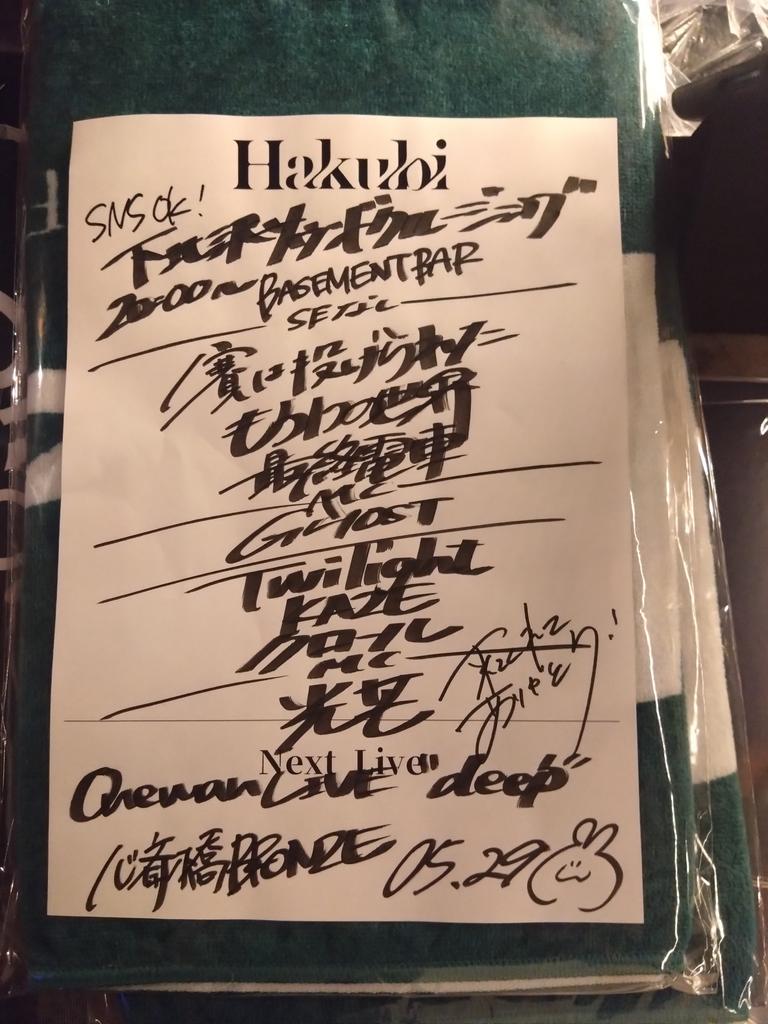 Hakubi
SNS OK!
下北沢サウンドクルージング
20:00〜 BASEMENTBAR
SEなし
賽は投げられた
もうひとつの世界
最終電車
MC
GHOST
Twilight
KAZE
クロール
MC
光芒
来てくれて
ありがとう!
Next Live
Oneman LIVE "deep"
心斎橋BRONZE 05.29